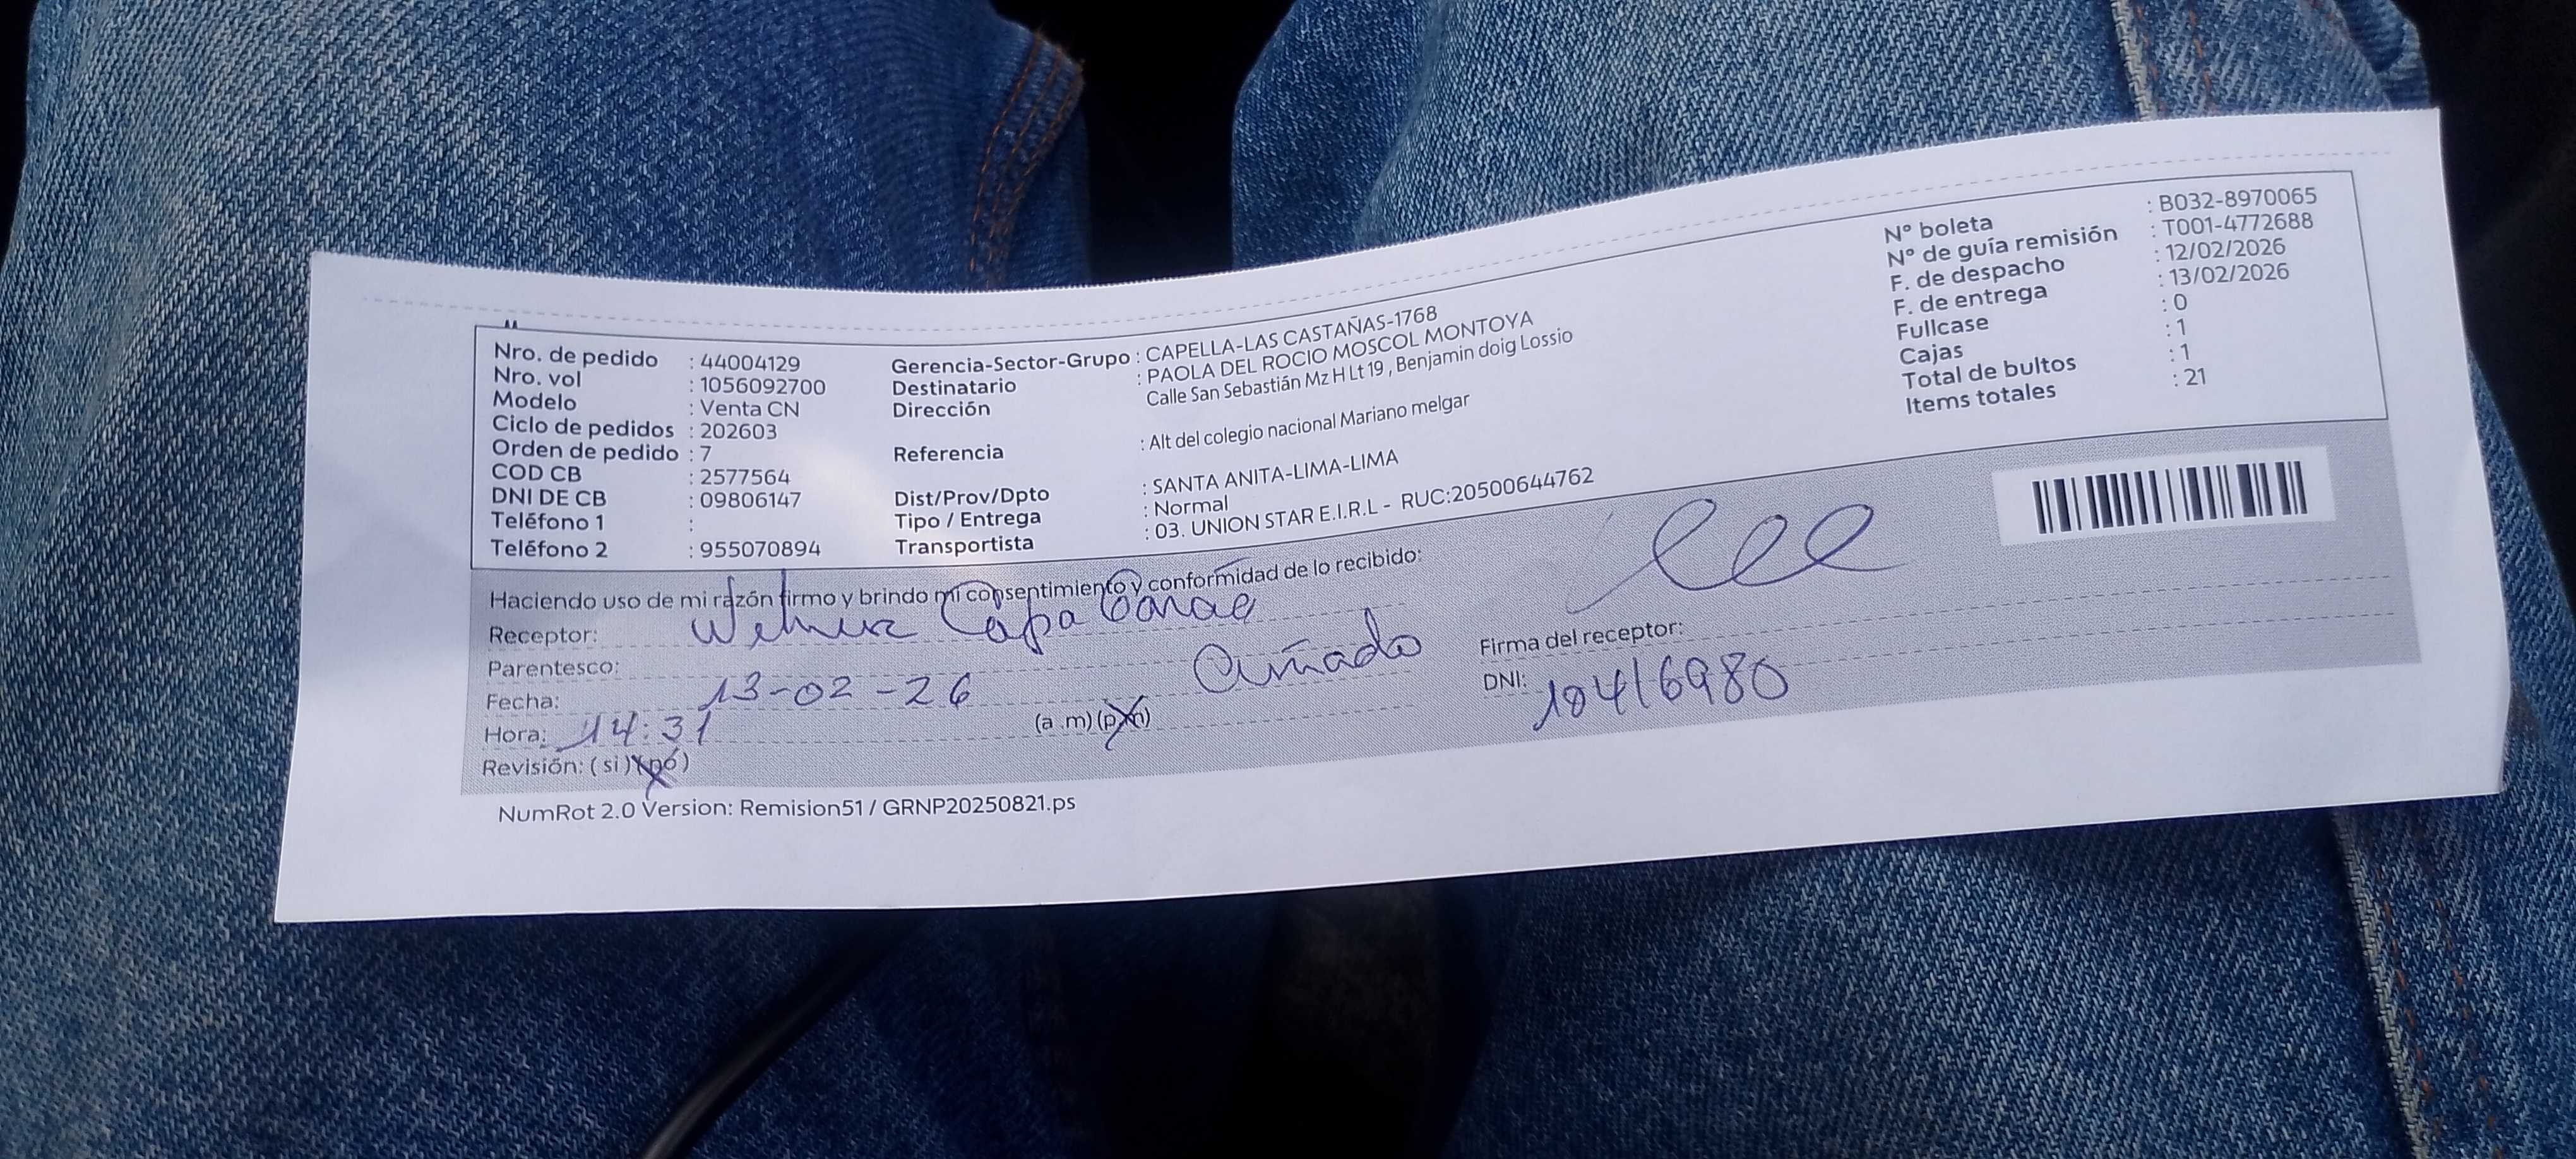 Nro. de pedido : 44004129
Nro. vol : 1056092700
Modelo : Venta CN
Ciclo de pedidos : 202603
Orden de pedido : 7
COD CB : 2577564
DNI DE CB : 09806147
Teléfono 1 :
Teléfono 2 : 955070894
Gerencia-Sector-Grupo : CAPELLA-LAS CASTAÑAS-1768
Destinatario : PAOLA DEL ROCIO MOSCOL MONTOYA
Dirección Calle San Sebastián Mz H Lt 19 , Benjamin doig Lossio
Referencia : Alt del colegio nacional Mariano melgar
Dist/Prov/Dpto : SANTA ANITA-LIMA-LIMA
Tipo / Entrega : Normal
Transportista : 03. UNION STAR E.I.R.L - RUC:20500644762
N° boleta : B032-8970065
N° de guía remisión : T001-4772688
F. de despacho : 12/02/2026
F. de entrega : 13/02/2026
Fullcase : 0
Cajas : 1
Total de bultos : 1
Items totales : 21
Haciendo uso de mi razón firmo y brindo mi consentimiento y conformidad de lo recibido:
Receptor: Capa
Parentesco: Cuñado
Fecha: 13-02-26
Hora: 14:31 (a .m) (p.m)
Revisión: ( si ) ( no )
Firma del receptor:
DNI: 10416980
NumRot 2.0 Version: Remision51 / GRNP20250821.ps